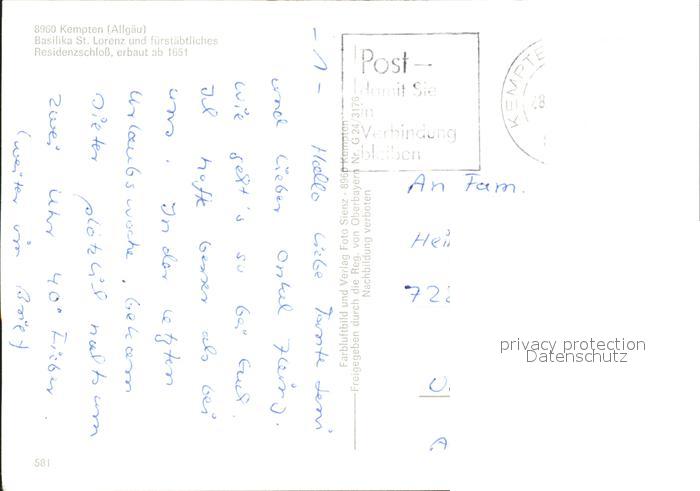 8960 Kempten (Allgäu)
Basilika St. Lorenz und fürstäbtliches
Residenzschloß, erbaut ab 1651
Post –
damit Sie
in
Verbindung
bleiben
KEMPTE
- 1 - Hallo liebe Tante
und lieber Onkel Heinz.
Wie geht's so bei Euch.
Ich hoffe besser als bei
uns. In der letzten
Urlaubswoche, bekam
Dieter plötzlich nachts um
zwei Uhr 40° Fieber.
(weiter im Brief)
Farbluftbild und Verlag Foto Sienz · 8960 Kempten
Freigegeben durch die Reg. von Oberbayern Nr. G 24/3176
Nachbildung verboten
An Fam.
Hei
72
581
privacy protection
Datenschutz